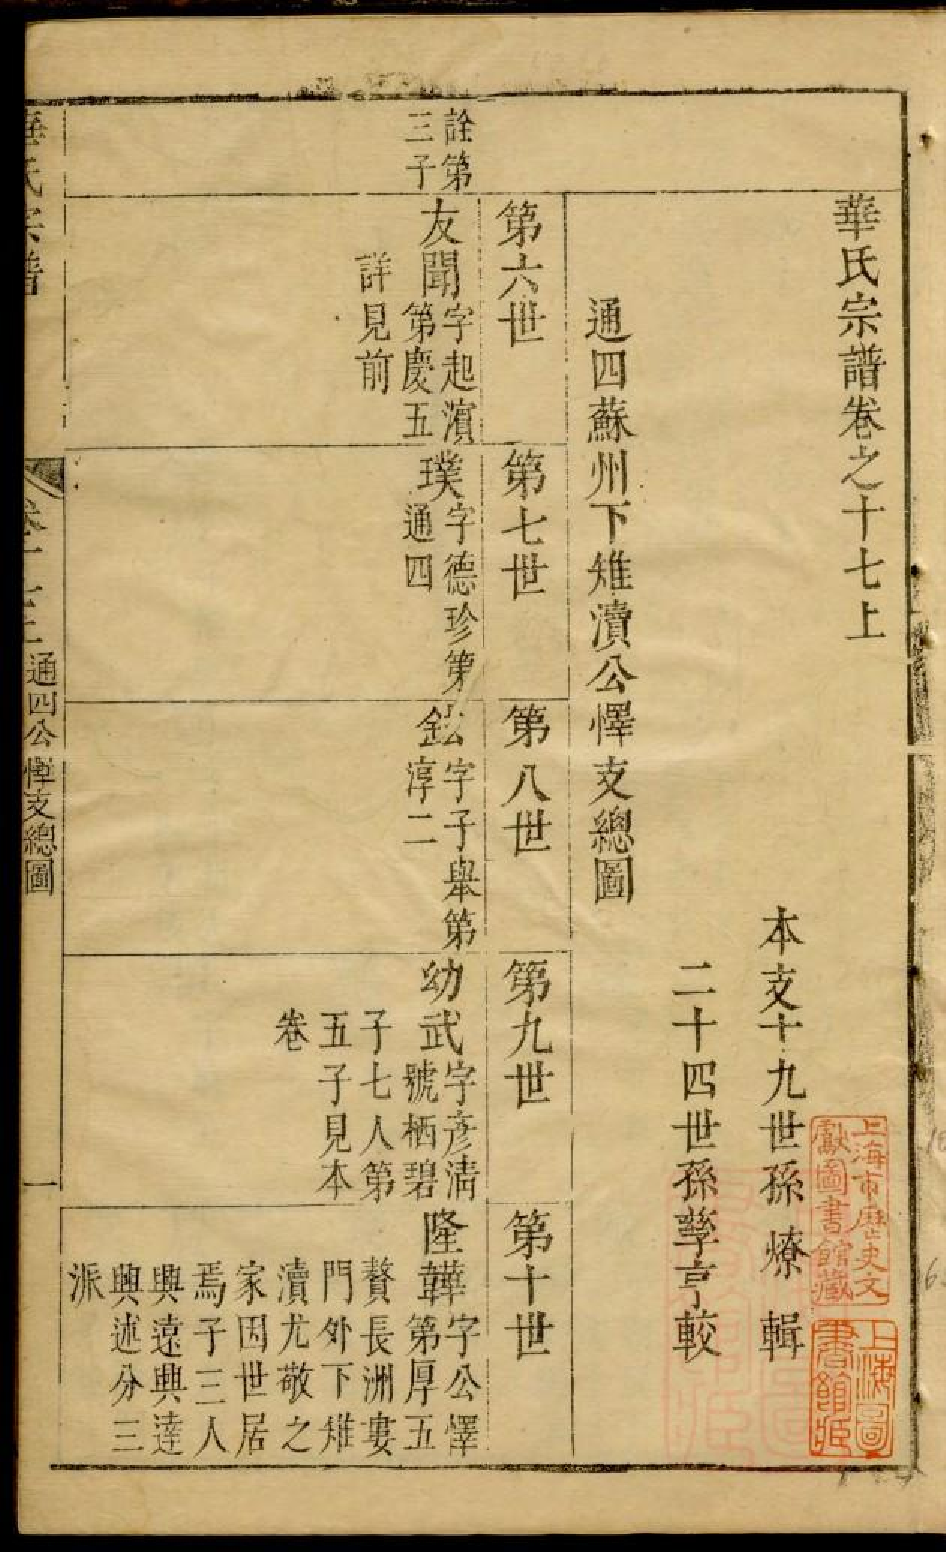 華氏宗譜卷之十七上
本支十九世孫燎輯
二十四世孫孳亨較
通四蘇州下雉瀆公懌支總圖
第六世
詮第
三子
友聞
字起濵
第慶五
詳見前
第七世
璞
字德珍第
通四
第八世
鉉
字子舉第
淳二
第九世
幼武
字彥清
號栖碧
子七人第
五子見本
卷
第十世
隆韡
字公懌
第厚五
贅長洲婁
門外下雉
瀆尤敬之
家因世居
焉子三人
興遠興達
興述分三
派
華氏宗譜
卷十七上
通四公懌支總圖
一
上海市歷史文
獻圖書館藏
上海圖
書館藏